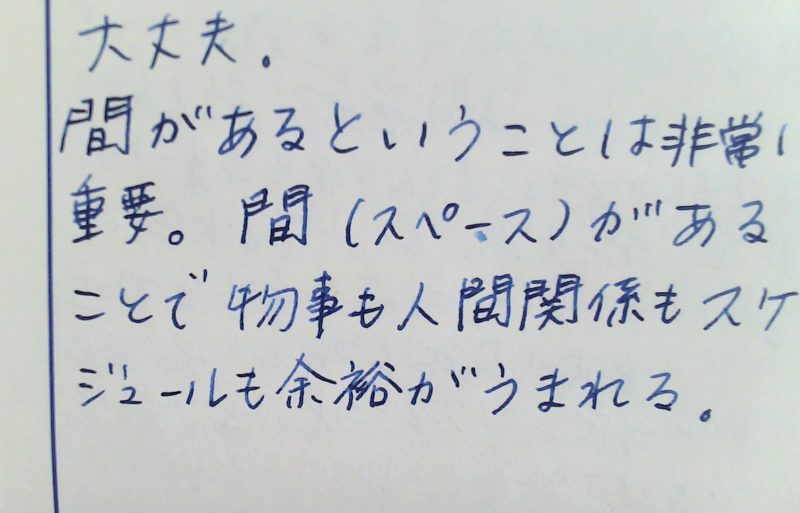 大丈夫.
間があるということは非常に
重要。間(スペース)がある
ことで物事も人間関係もスケ
ジュールも余裕がうまれる.